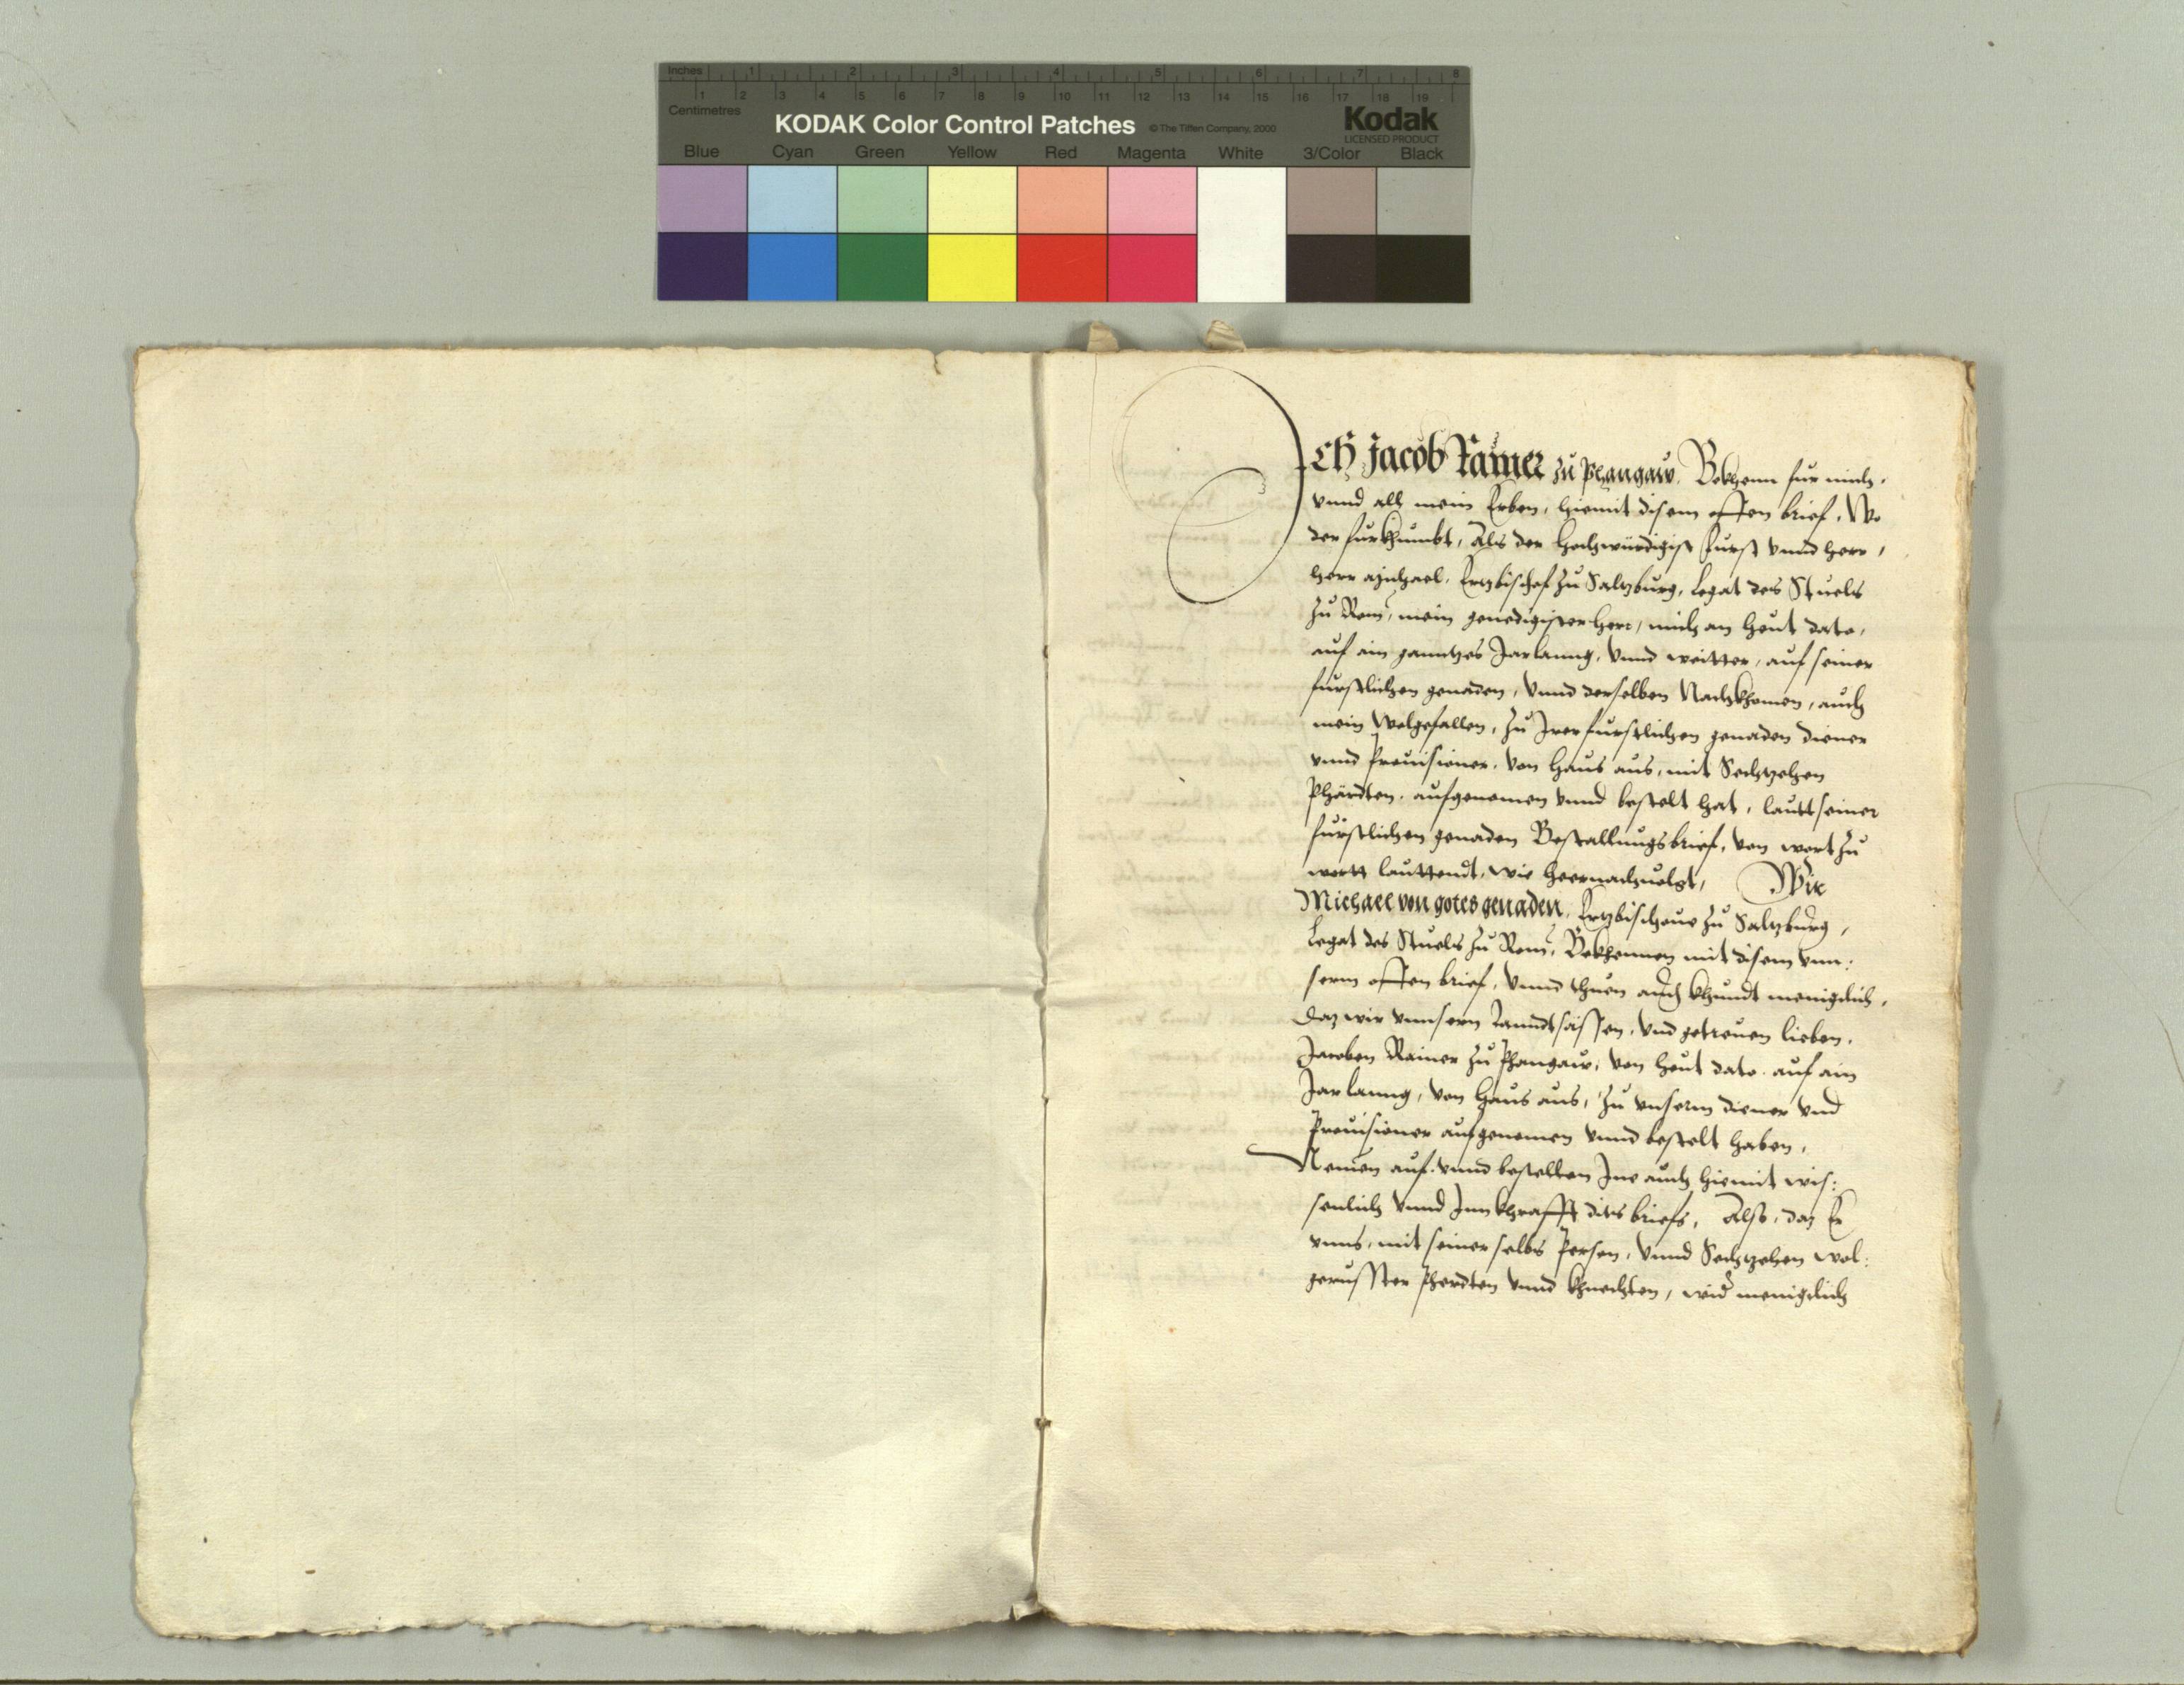 Inches 1 2 3 4 5 6 7 8
1 2 3 4 5 6 7 8 9 10 11 12 13 14 15 16 17 18 19
Centimetres
KODAK Color Control Patches © The Tiffen Company, 2000 Kodak
LICENSED PRODUCT
Blue Cyan Green Yellow Red Magenta White 3/Color Black
Ich Jacob Rainer zu Phangaw. Bekhenn fur mich,
vnnd all mein Erben, hiemit disem offen brief, Wo
der furkhumbt, Als der Hochwürdigist Furst vnnd herr,
herr Michael, Ertzbischof zu Saltzburg, Legat des Stuels
zu Rom, mein genedigister herr, mich an heut dato,
auf ain ganntzes Jarlanng, vnnd weitter, auf seiner
furstlichen genaden, vnnd derselben Nachkhomen, auch
mein Wolgefallen, zu Irer furstlichen genaden diener
vnnd Prouisioner, von Haus aus, mit Sechtzehen
Phärdten, aufgenomen vnnd bestelt hat, lautt seiner
furstlichen genaden Bestallungsbrief, von wort zu
wortt lauttendt, wie hernachuolgt, Wir
Michael von gotes genaden, Ertzbischoue zu Saltzburg,
Legat des Stuels zu Rom, Bekhennen mit disem vnn:
serm offen brief, vnnd thuen auch khundt menigclich,
Daz wir vnnsern Lanndtsässen, vnd getreuen lieben,
Jacoben Rainer zu Phangaw, von heut dato auf ain
Jarlanng, von Haus aus, zu vnserm diener vnd
Prouisioner aufgenomen vnnd bestelt haben,
Nemen auf vnnd bestellen Ine auch hiemit wis:
senlich vnnd Inn khrafft dits briefs, Also, daz Er
vnns, mit seiner selbs Person, vnnd Sechtzehen wol:
gerusster Pherdten vnnd khnechten, wider menigclich